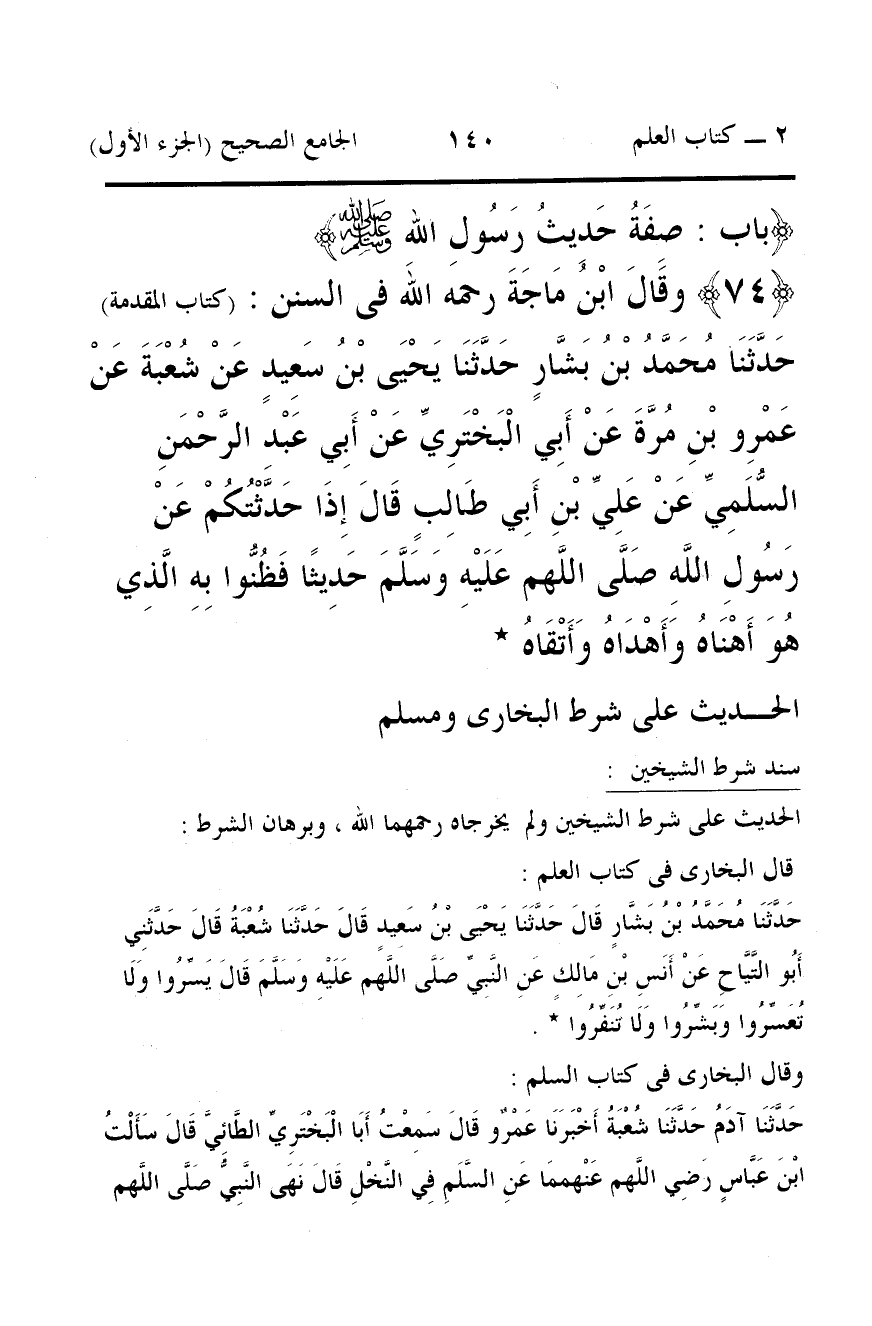 ٢ ـــ كتاب العلم ١٤٠ الجامع الصحيح (الجزء الأول)
﴿باب : صفَةُ حَديثُ رَسُولِ اللهِ ﷺ﴾
﴿٧٤﴾ وقَالَ ابْنُ مَاجَةَ رحمه الله فى السنن : (كتاب المقدمة)
حَدَّثَنَا مُحَمَّدُ بْنُ بَشَّارٍ حَدَّثَنَا يَحْيَى بْنُ سَعِيدٍ عَنْ شُعْبَةَ عَنْ
عَمْرِو بْنِ مُرَّةَ عَنْ أَبِي الْبَخْتَرِيِّ عَنْ أَبِي عَبْدِ الرَّحْمَنِ
السُّلَمِيِّ عَنْ عَلِيِّ بْنِ أَبِي طَالِبٍ قَالَ إِذَا حَدَّثْتُكُمْ عَنْ
رَسُولِ اللَّهِ صَلَّى اللَّهم عَلَيْهِ وَسَلَّمَ حَدِيثًا فَظُنُّوا بِهِ الَّذِي
هُوَ أَهْنَاهُ وَأَهْدَاهُ وَأَتْقَاهُ *
الحـــديث على شرط البخارى ومسلم
سند شرط الشيخين :
الحديث على شرط الشيخين ولم يخرجاه رحمهما الله ، وبرهان الشرط :
قال البخارى فى كتاب العلم :
حَدَّثَنَا مُحَمَّدُ بْنُ بَشَّارٍ قَالَ حَدَّثَنَا يَحْيَى بْنُ سَعِيدٍ قَالَ حَدَّثَنَا شُعْبَةُ قَالَ حَدَّثَنِي
أَبُو التَّيَّاحِ عَنْ أَنَسِ بْنِ مَالِكٍ عَنِ النَّبِيِّ صَلَّى اللَّهم عَلَيْهِ وَسَلَّمَ قَالَ يَسِّرُوا وَلَا
تُعَسِّرُوا وَبَشِّرُوا وَلَا تُنَفِّرُوا * .
وقال البخارى فى كتاب السلم :
حَدَّثَنَا آدَمُ حَدَّثَنَا شُعْبَةُ أَخْبَرَنَا عَمْرٌو قَالَ سَمِعْتُ أَبَا الْبَخْتَرِيِّ الطَّائِيَّ قَالَ سَأَلْتُ
ابْنَ عَبَّاسٍ رَضِي اللَّهم عَنْهممَا عَنِ السَّلَمِ فِي النَّخْلِ قَالَ نَهَى النَّبِيُّ صَلَّى اللَّهم